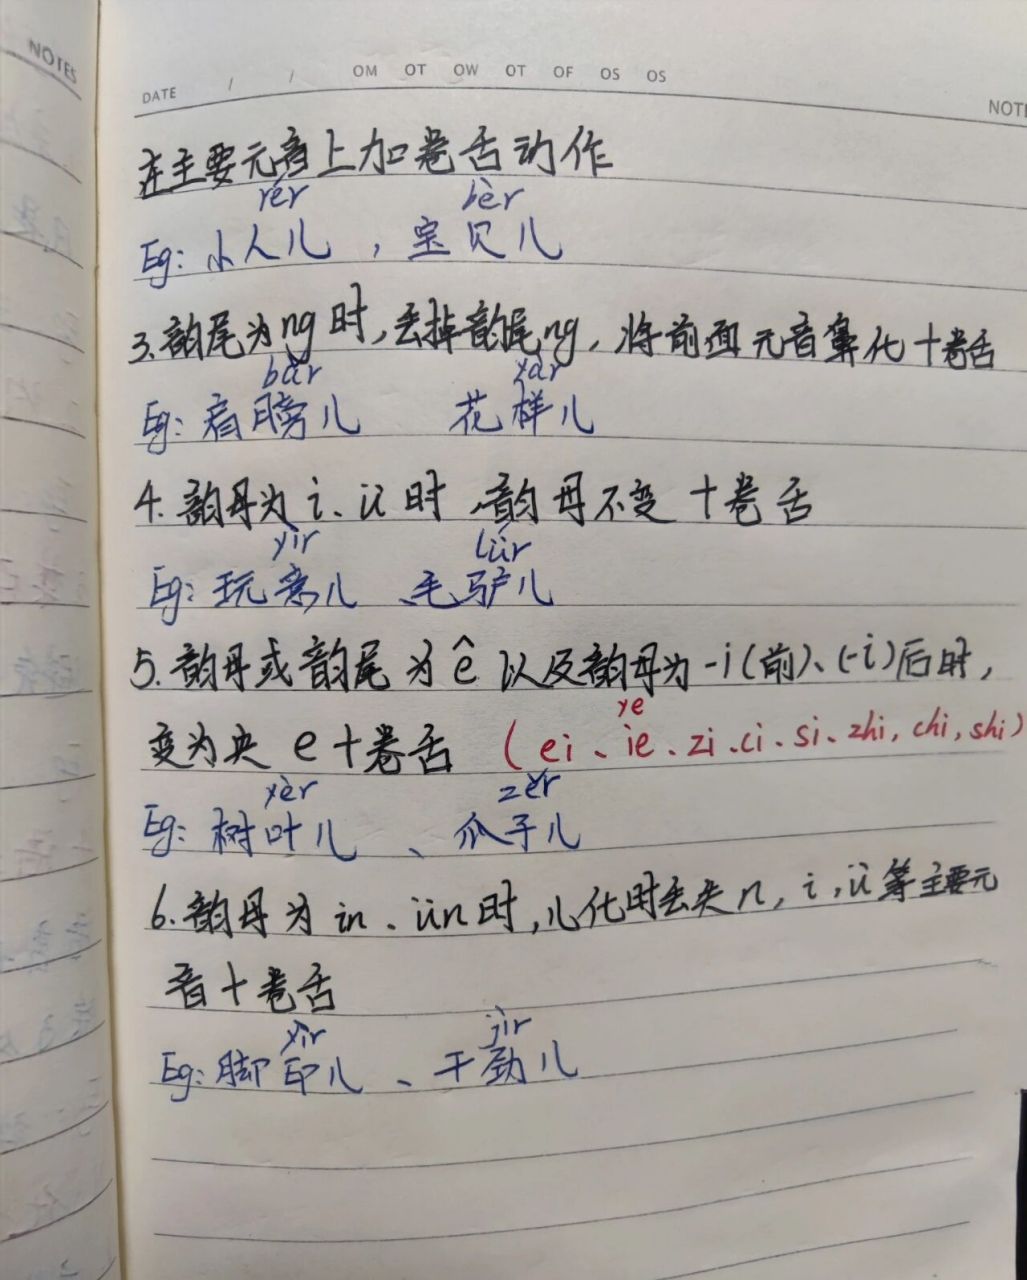 NOTES
DATE / / OM OT OW OT OF OS OS
NOTE
在主要元音上加卷舌动作
rér bèr
Eg: 小人儿 , 宝贝儿
3. 韵尾为ng时,丢掉韵尾ng, 将前面元音鼻化+卷舌
bǎr yàr
Eg: 肩膀儿 花样儿
4. 韵母为i、ü时,韵母不变+卷舌
yìr lǘr
Eg: 玩意儿 、毛驴儿
5. 韵母或韵尾为ê以及韵母为-i(前)、(-i)后时,
ye
变为央e+卷舌 (ei、ie、zi、ci、si、zhi, chi, shi)
yèr zěr
Eg: 树叶儿 、瓜子儿
6. 韵母为in、ün时,儿化时丢失n, i, ü等主要元
音+卷舌
yìr jìr
Eg: 脚印儿 、干劲儿